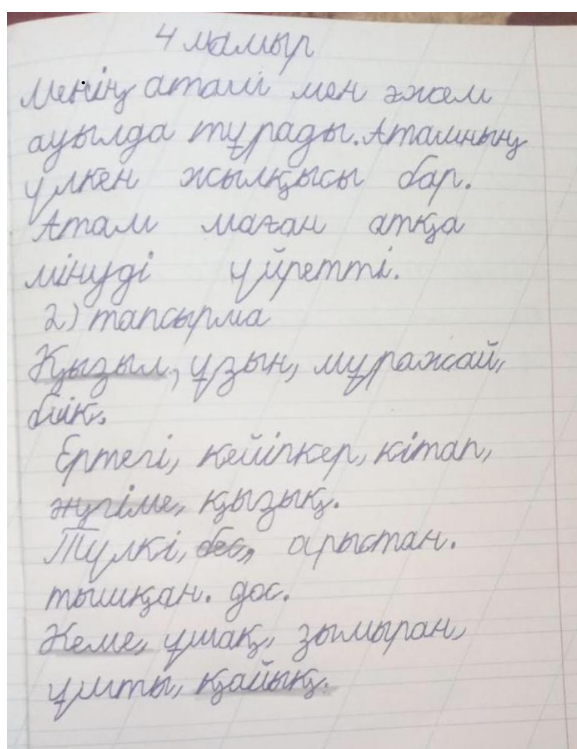 4 мамыр
Менің атам мен әжем
ауылда тұрады. Атамның
үлкен жылқысы бар.
Атам маған атқа
мінуді үйретті.
2) тапсырма
Қызыл, ұзын, мұражай,
биік.
Ертегі, кейіпкер, кітап,
әңгіме, қызық.
Түлкі, бес, арыстан.
тышқан. дос.
Кеме, ұшақ, зымыран,
ұшты, қайық.